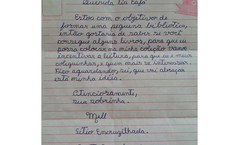 Querida tia Cafa
Estou com o objetivo de
formar uma pequena biblioteca,
então gostaria de saber se você
consegue alguns livros, para que eu
possa colocar na minha coleção. Vamos
incentivar a leitura, para que eu e meus
coleguinhas, e quem mais se interessar
Fico aguardando, sei que vai abraçar
este minha ideia.
Atenciosamente,
sua sobrinha.
Mell
Sítio Encruzilhada.